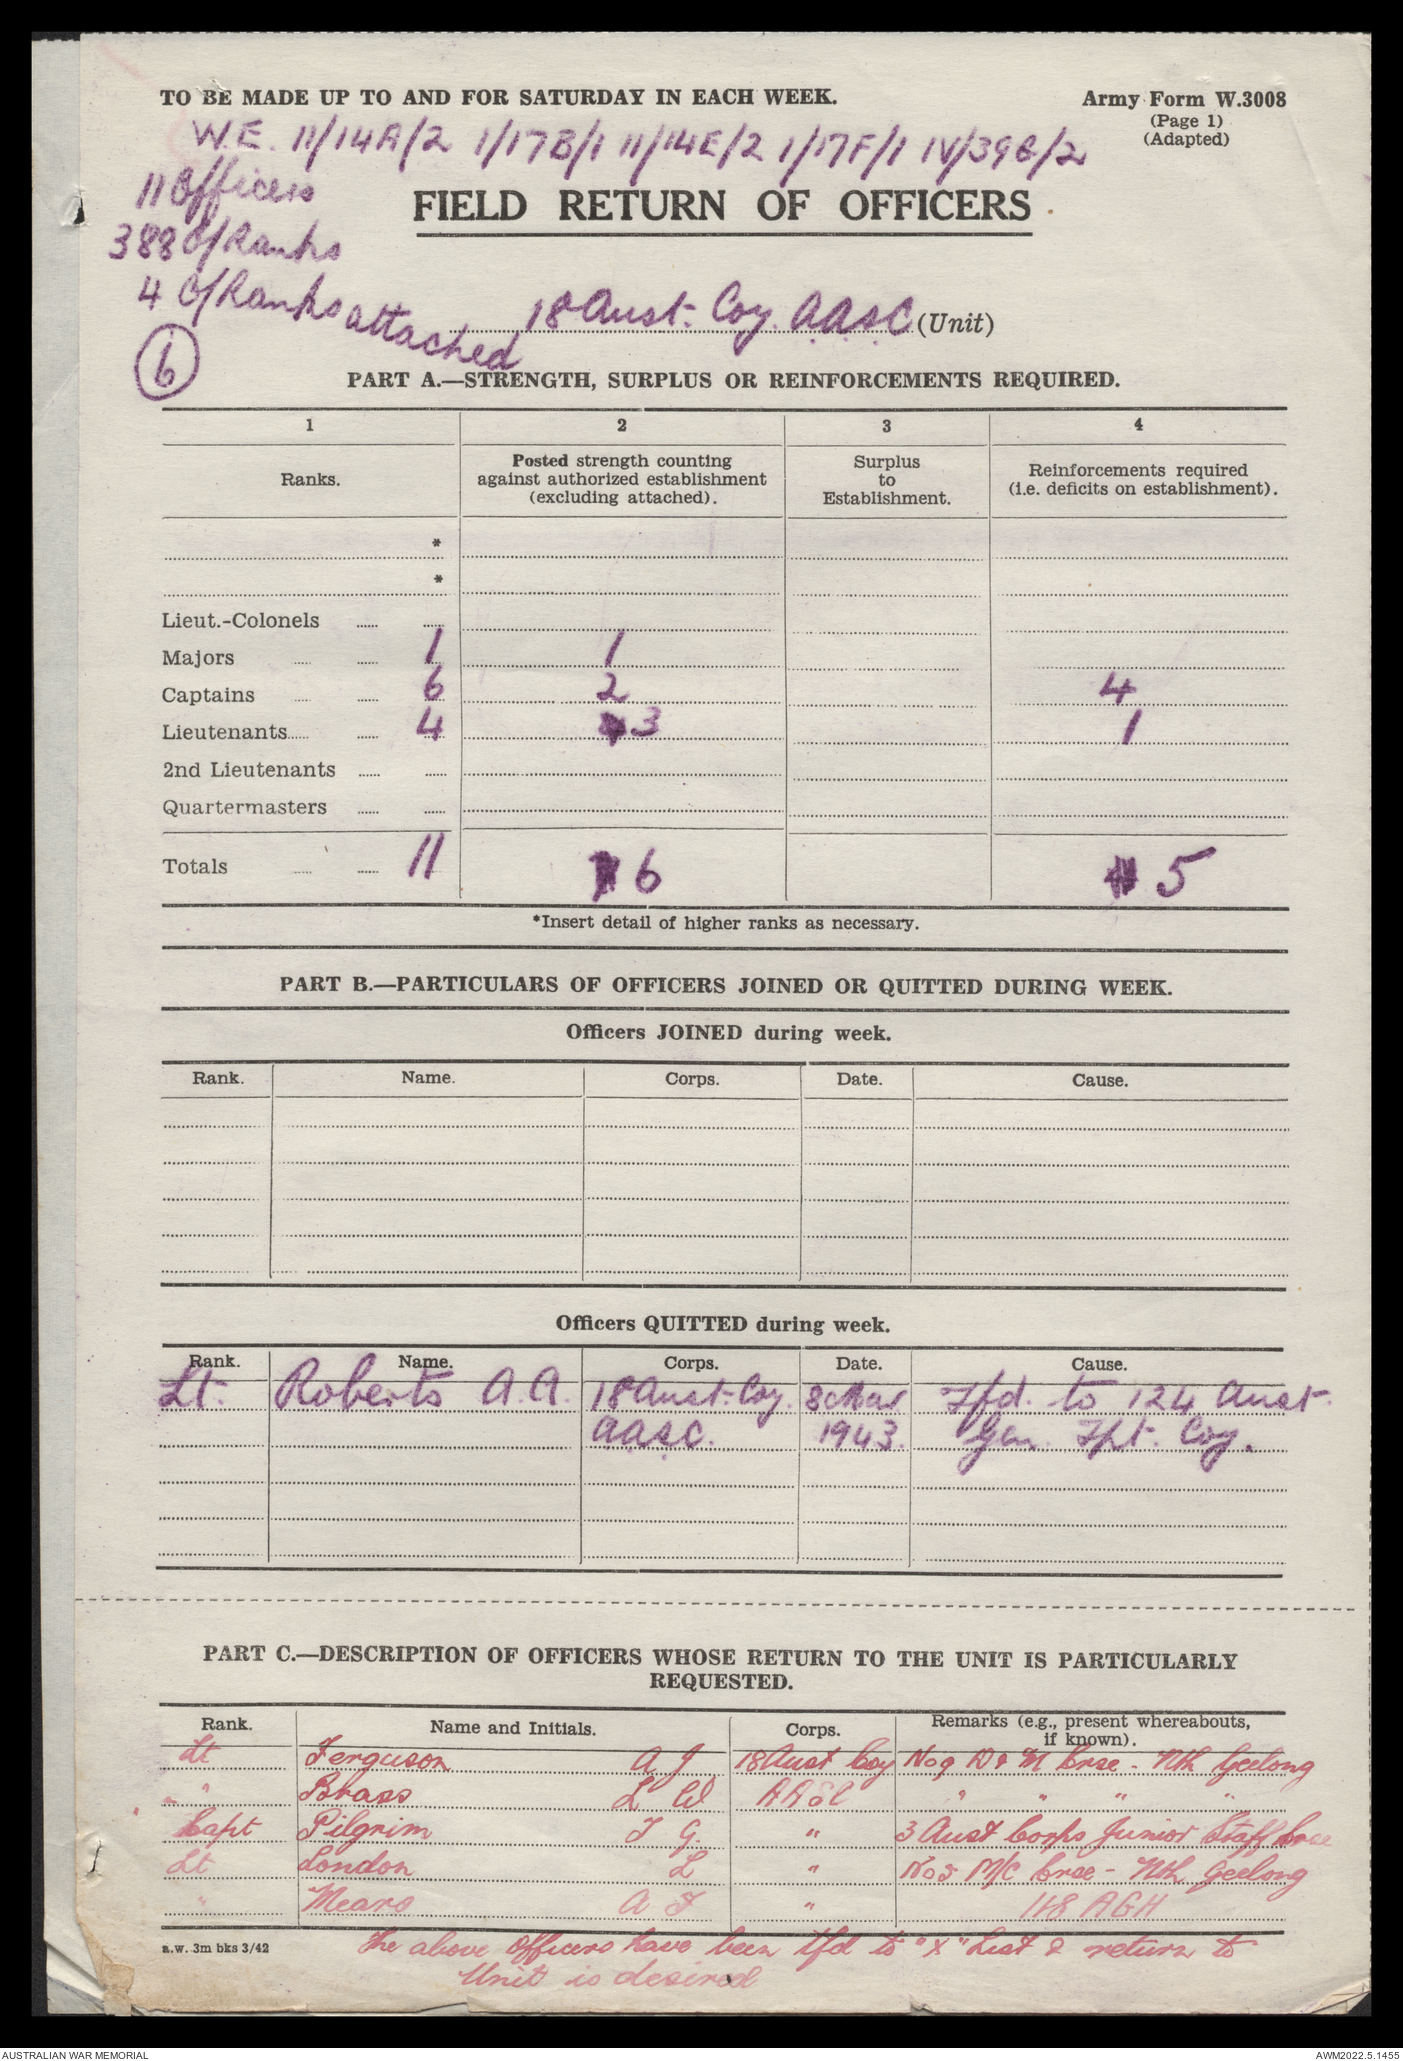 TO BE MADE UP TO AND FOR SATURDAY IN EACH WEEK.
Army Form W.3008
(Page 1)
(Adapted)
W.E. 11/14A/2 1/17B/1 11/14E/2 1/17F/1 IV/39B/2
11 Officers
388 O/Ranks
4 O/Ranks attached
FIELD RETURN OF OFFICERS
18 Aust. Coy. A.A.S.C (Unit)
6
PART A.—STRENGTH, SURPLUS OR REINFORCEMENTS REQUIRED.
1 2 3 4
Ranks. Posted strength counting against authorized establishment (excluding attached). Surplus to Establishment. Reinforcements required (i.e. deficits on establishment).
*
*
Lieut.-Colonels
Majors 1 1
Captains 6 2 4
Lieutenants 4 3 1
2nd Lieutenants
Quartermasters
Totals 11 6 5
*Insert detail of higher ranks as necessary.
PART B.—PARTICULARS OF OFFICERS JOINED OR QUITTED DURING WEEK.
Officers JOINED during week.
Rank. Name. Corps. Date. Cause.
Officers QUITTED during week.
Rank. Name. Corps. Date. Cause.
Lt. Roberts A.A. 18 Aust. Coy. 8 Mar Tfd. to 124 Aust.
A.A.S.C. 1943. Gen. Tpt. Coy.
PART C.—DESCRIPTION OF OFFICERS WHOSE RETURN TO THE UNIT IS PARTICULARLY
REQUESTED.
Rank. Name and Initials. Corps. Remarks (e.g., present whereabouts, if known).
Lt Ferguson A J 18 Aust Coy No 9 D & M Crse - Nth Geelong
" Brass L W AASC " " " "
Capt Pilgrim T G. " 3 Aust Corps Junior Staff Crse
Lt London L " No 5 M/C Crse - Nth Geelong
" Mears A F " 118 AGH
a.w. 3m bks 3/42
The above Officers have been tfd to "X" List & return to
Unit is desired
AUSTRALIAN WAR MEMORIAL
AWM2022.5.1455